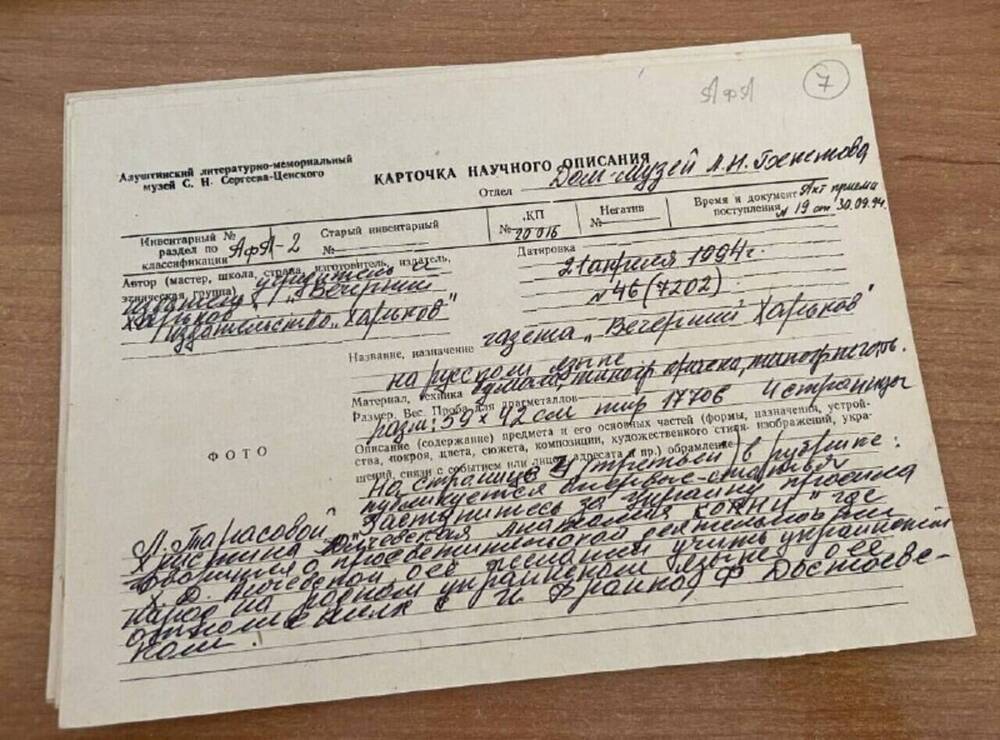 АфА 7
Алуштинский литературно-мемориальный
музей С. Н. Сергеева-Ценского
КАРТОЧКА НАУЧНОГО ОПИСАНИЯ
Отдел Дом-музей А.Н. Бекетова
Инвентарный №
раздел по
классификации АфА-2
Старый инвентарный
№
КП
№ 20016
Негатив
№
Время и документ Акт приема
поступления № 19 от 30.09.94.
Автор (мастер, школа, страна, изготовитель, издатель,
этническая группа) учредитель и
издатель „Вечерний
Харьков"
издательство „Харьков"
Датировка
21 апреля 1994г.
№ 46 (7202)
Название, назначение газета „Вечерний Харьков"
на русском языке
Материал, техника бумага, типогр краска, типогр печать.
Размер. Вес. Проба для драгметаллов
разм: 59 х 42 см тир 17706 4 страницы
Описание (содержание) предмета и его основных частей (формы, назначения, устрой-
ства, покроя, цвета, сюжета, композиции, художественного стиля изображений, укра-
шений, связи с событием или лицом, адресата и пр.) обрамление
ФОТО
На странице (третьей) в рубрике:
публикуется впервые - статья
А. Тарасовой „Заступитесь за Украину, просила
Христина Алчевская Анатолия Кони" где
говорится о просветительской деятельности
Х. Д. Алчевской, о ее желании учить украинский
народ на родном украинском языке, о ее
отношениях с И Франко, Ф Достоевс-
ким.